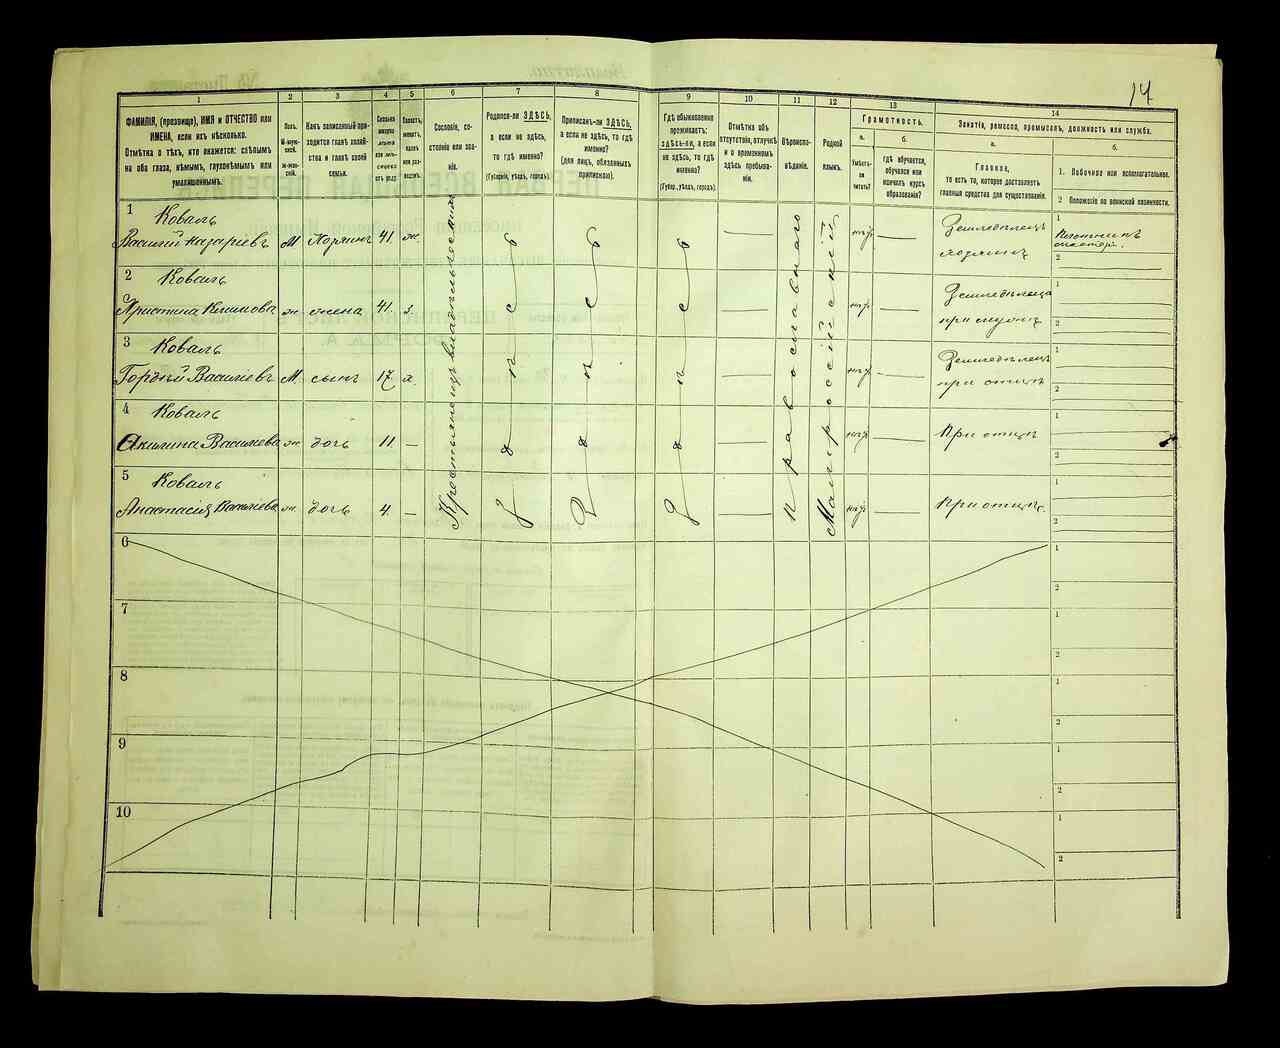 14
1
2
3
4
5
6
7
8
9
10
11
12
13
14
ФАМИЛІЯ, (прозвище), ИМЯ и ОТЧЕСТВО или
ИМЕНА, если ихъ нѣсколько.
Отмѣтка о тѣхъ, кто окажется: слѣпымъ
на оба глаза, нѣмымъ, глухонѣмымъ или
умалишеннымъ.
Полъ.
М-муж-
ской.
Ж-жен-
скій.
Какъ записанный при-
ходится главѣ хозяй-
ства и главѣ своей
семьи.
Сословіе, со-
стояніе или зва-
ніе.
Родился-ли ЗДѢСЬ,
а если не здѣсь,
то гдѣ именно?
(Губернія, уѣздъ, городъ).
Приписанъ-ли ЗДѢСЬ,
а если не здѣсь, то гдѣ
именно?
(для лицъ, обязанныхъ
припискою).
Гдѣ обыкновенно
проживаетъ:
здѣсь-ли, а если
не здѣсь, то гдѣ
именно?
(Губер., уѣздъ, городъ).
Отмѣтка объ
отсутствіи, отлучкѣ
и о временномъ
здѣсь пребыва-
ніи.
Вѣроиспо-
вѣданіе.
Родной
языкъ.
Грамотность.
а.
Умѣетъ-
ли
читать?
б.
гдѣ обучается,
обучался или
кончилъ курсъ
образованія?
Занятіе, ремесло, промыселъ, должность или служба.
а.
Главное,
то есть то, которое доставляетъ
главныя средства для существованія.
б.
1. Побочное или вспомогательное.
2. Положеніе по воинской повинности.
1
Коваль
Василій Назаріевъ М Хозяинъ 41. ж.
Крестьяне изъ владѣльческихъ
здѣсь
здѣсь
здѣсь
православное
Малороссійскій
нѣтъ
Земледѣлецъ
хозяинъ
1
Плотникъ
2
2
Коваль
Христина Климова ж жена 41. з.
нѣтъ
Земледѣлица
при мужѣ
1
2
3
Коваль
Гордѣй Василіевъ М. сынъ 17 х.
нѣтъ
Земледѣлецъ
при отцѣ
1
2
4
Коваль
Акилина Василіева ж. дочь 11 —
нѣтъ
При отцѣ
1
2
5
Коваль
Анастасія Василіева ж. дочь 4. —
нѣтъ
При отцѣ.
1
2
6
1
2
7
1
2
8
1
2
9
1
2
10
1
2